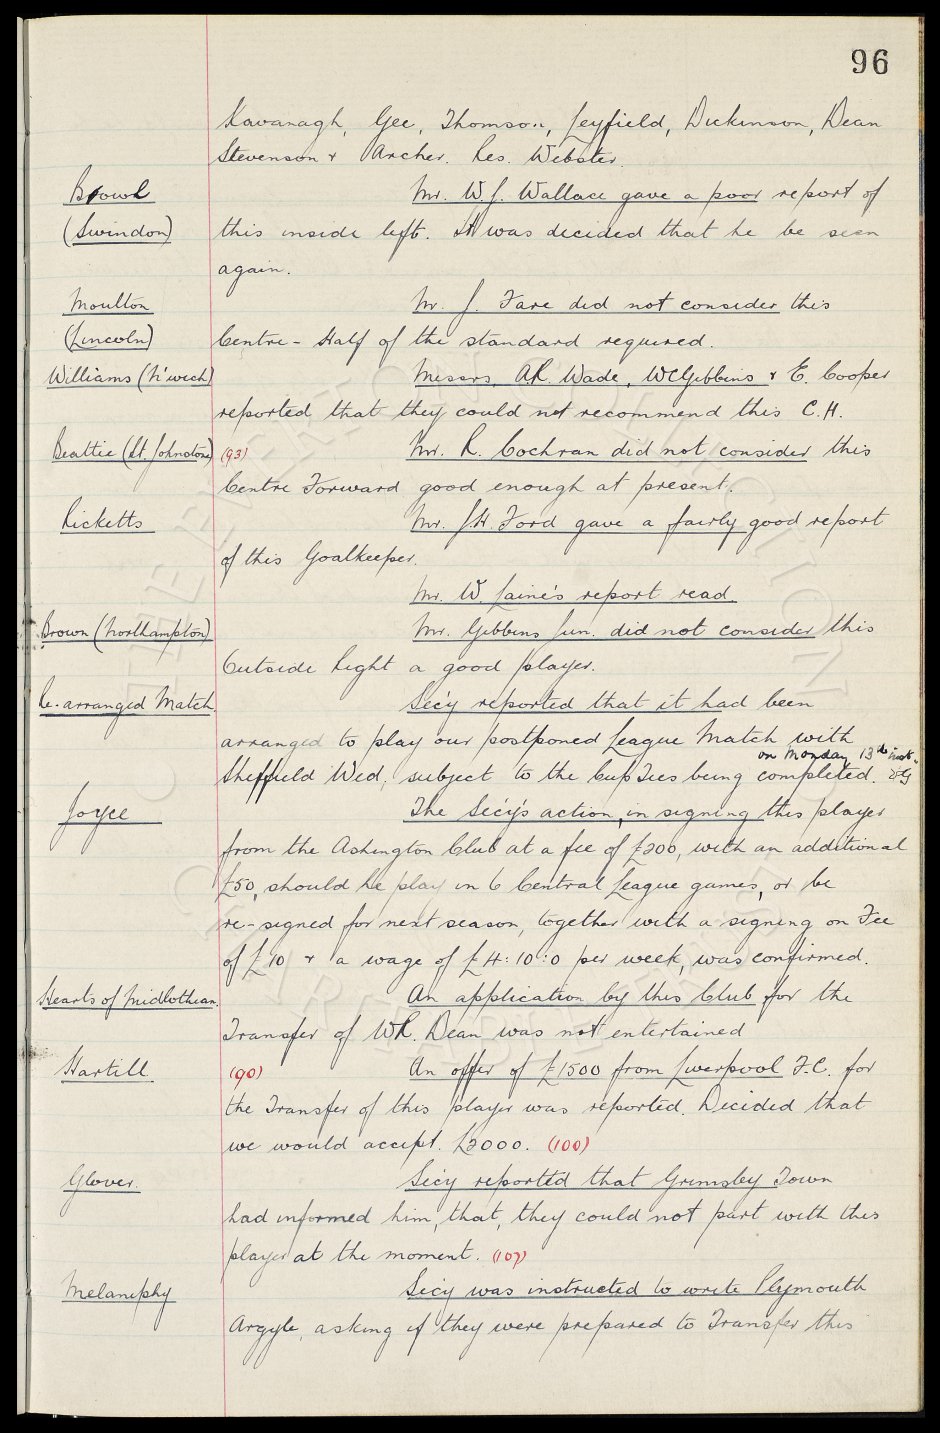 96
Kavanagh, Gee, Thomson, Leyfield, Dickinson, Dean
Stevenson & Archer. Res. Webster.
Bowl Mr. W.J. Wallace gave a poor report of
(Swindon) this inside left. It was decided that he be seen
again.
Moulton Mr. J. Fare did not consider this
(Lincoln) Centre-Half of the standard required.
Williams (N'wich) Messrs. A.R. Wade, W.C. Gibbins & E. Cooper
reported that they could not recommend this C.H.
Beattie (St. Johnstone) (93) Mr. R. Cochran did not consider this
Centre Forward good enough at present.
Ricketts Mr. J.H. Ford gave a fairly good report
of this Goalkeeper.
Mr. W. Laine's report read.
Brown (Northampton) Mr. Gibbins Jun. did not consider this
Outside Right a good player.
Re-arranged Match Sec'y reported that it had been
arranged to play our postponed League Match with
on Monday 13th inst.
Sheffield Wed, subject to the Cup Ties being completed.
Joyce The Sec'y's action, in signing this player
from the Ashington Club at a fee of £200, with an additional
£50, should he play in 6 Central League games, or be
re-signed for next season, together with a signing on Fee
of £10 & a wage of £4:10:0 per week, was confirmed.
Hearts of Midlothian. An application by this Club for the
Transfer of W.R. Dean was not entertained
Hartill (90) An offer of £1500 from Liverpool F.C. for
the Transfer of this player was reported. Decided that
we would accept. £2000. (100)
Glover. Sec'y reported that Grimsby Town
had informed him, that, they could not part with this
player at the moment. (107)
Melaniphy Sec'y was instructed to write Plymouth
Argyle, asking if they were prepared to Transfer this